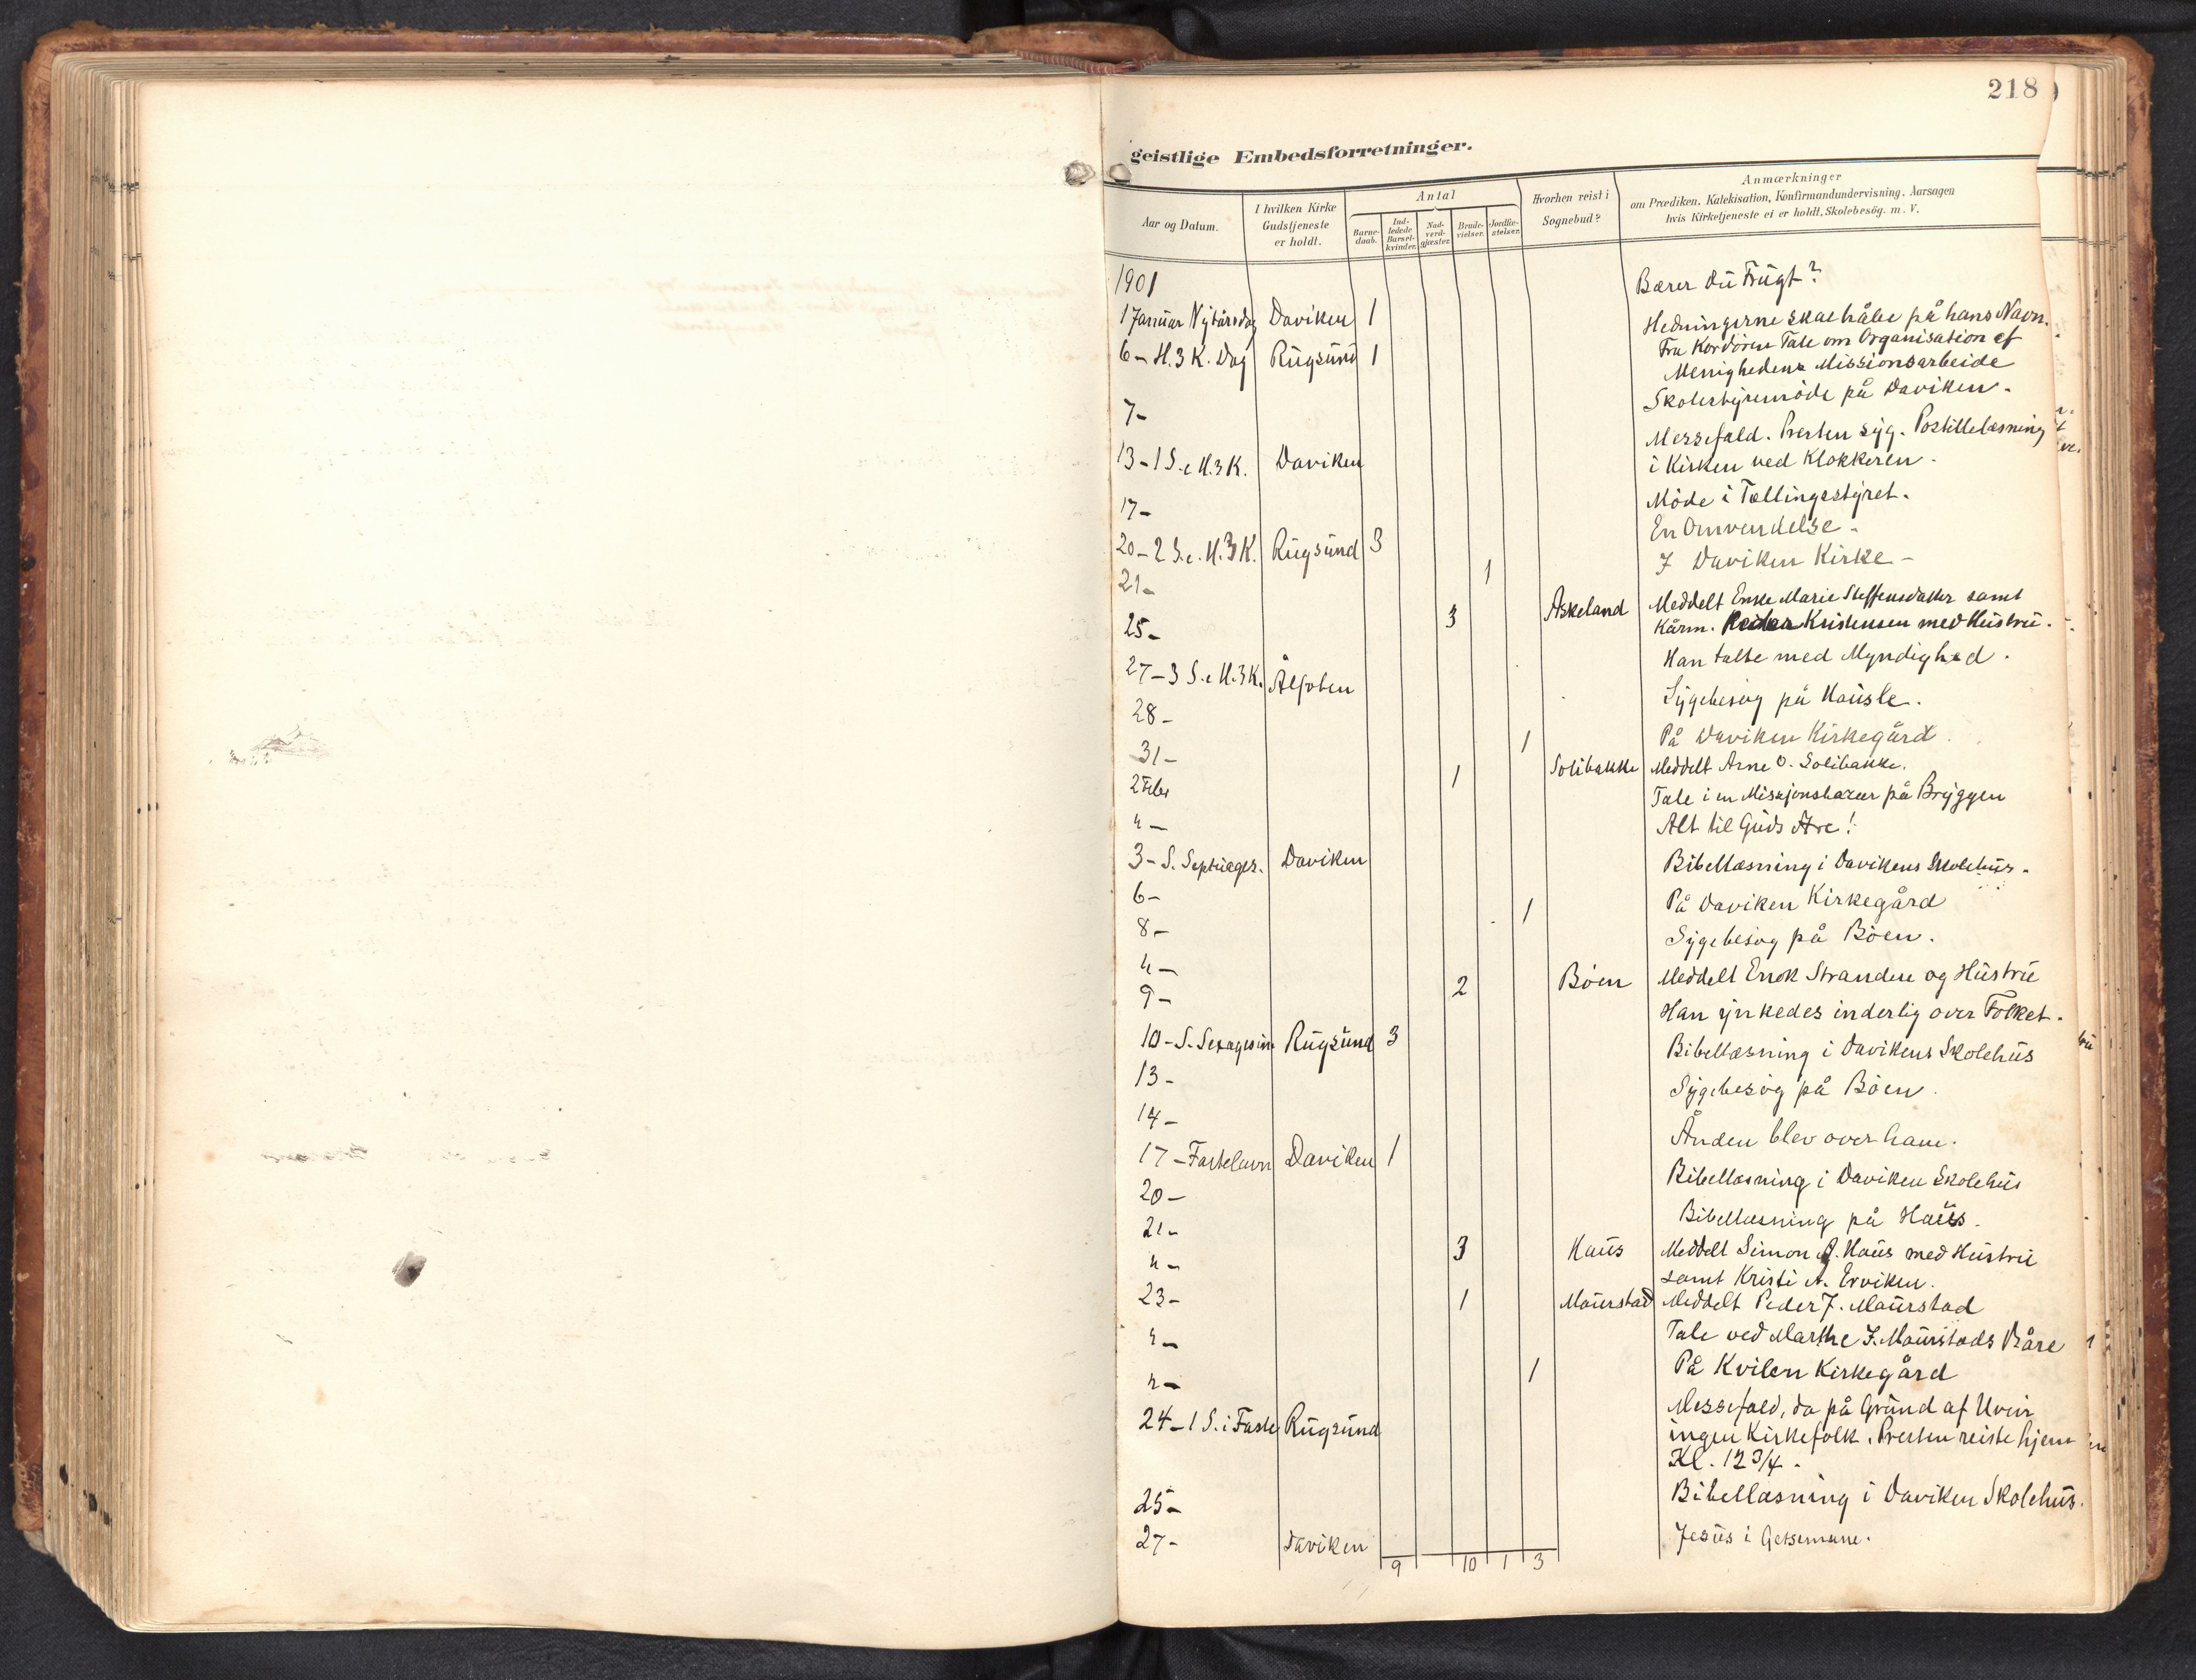 218
geistlige Embedsforretninger.
Aar og Datum.
I hvilken Kirke
Gudstjeneste
er holdt.
Antal
Barne-
daab.
Ind-
ledede
Barsel-
kvinder.
Nad-
verd-
gjæster.
Brude-
vielser.
Jordfæ-
stelser.
Hvorhen reist i
Sognebud?
Anmærkninger
om Prædiken, Katekisation, Konfirmandundervisning, Aarsagen
hvis Kirketjeneste ei er holdt, Skolebesög. m. V.
1901
Bærer du Frugt?
1 Januar Nytårsdag Daviken 1
Hedningerne skal håbe på hans Navn.
6 - H.3 K. Dag Rugsund 1
Fra Kordören Tale om Organisation af
Menighedens Missionsarbeide
7 -
Skolestyremöde på Daviken.
13 - 1 S. e. H.3 K. Daviken
Messefald. Presten syg. Postillelæsning
i Kirken ved Klokkeren.
17 -
Möde i Tællingsstyret.
20 - 2 S. e. H.3 K. Rugsund 3
En Omvendelse -
21 - 1
I Daviken Kirke -
25 - 3 Askeland
Meddelt Enke Marie Steffensdatter samt
Kårm. Kristensen med Hustru.
27 - 3 S. e. H.3 K. Ålfoten
Han talte med Myndighed.
28 -
Sygebesög på Hausle.
31 - 1
På Daviken Kirkegård.
2 Febr 1 Solibakke
Meddelt Arne O. Solibakke.
" -
Tale i en Missjonsbazar på Bryggen
3 - S. Septuages. Daviken
Alt til Guds Ære!
6 -
Bibellæsning i Davikens Skolehus.
8 - 1
På Daviken Kirkegård
" -
Sygebesög på Böen.
9 - 2 Böen
Meddelt Enok Strandene og Hustru
10 - S. Sexagesim Rugsund 3
Han ynkedes inderlig over Folket.
13 -
Bibellæsning i Davikens Skolehus
14 -
Sygebesög på Böen.
17 - Fastelavn Daviken 1
Ånden blev over ham.
20 -
Bibellæsning i Daviken Skolehus
21 -
Bibellæsning på Haus.
" - 3 Haus
Meddelt Simon A. Haus med Hustru
samt Kristi A. Erviken.
23 - 1 Maurstad
Meddelt Peder J. Maurstad
" -
Tale ved Marthe J. Maurstads Båre
" - 1
På Kvilen Kirkegård
24 - 1 S. i Faste Rugsund
Messefald, da på Grund af Uveir
ingen Kirkefolk. Presten reiste hjem
Kl. 12 3/4.
25 -
Bibellæsning i Daviken Skolehus.
27 - Daviken
Jesus i Getsemane.
9 10 1 3